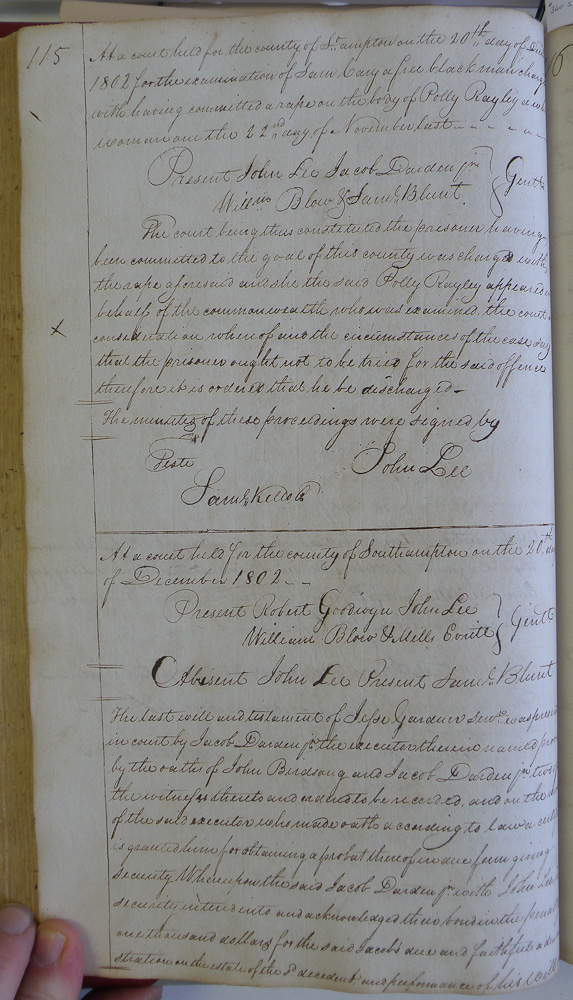 115
At a court held for the county of S:ampton on the 20th day of
1802 for the examination of Sam Cary a free black man
with having committed a rape on the body of Polly Rayley a
woman on the 22nd day of November last
Present John Lee Jacob Darden jr
Willms Blow & Saml Blunt. Gentn
The court being thus constituted the prisoner having
been committed to the goal of this county was charged with
the rape aforesaid and she the said Polly Rayley appeared
behalf of the commonwealth who was examined the court
consideration where of and the circumstances of the case say
that the prisoner ought not to be tried for the said offence
therefore it is ordered that he be discharged
The minutes of these proceedings were signed by
Teste John Lee
Saml Kello
At a court held for the county of Southampton on the 20th day
of December 1802
Present Robert Goodwyn John Lee
William Blow & Mills Gentn
Absent John Lee Present Saml Blunt
The last will and testament of Jesse Gardner Senr was
in court by Jacob Darden jr the executor therein named
by the oaths of John Birdsong and Jacob Darden jr two
the witnesses thereto and ordered to be recorded, and on the
of the said executor who made oath according to law a
is granted him for obtaining a probat thereof in due form giving
security Whereupon the said Jacob Darden jr with John Lee
security and acknowledged their bond in the
one thousand dollars for the said Jacob's due and faithful
stration on the estate of the sd decedent and performance of his will